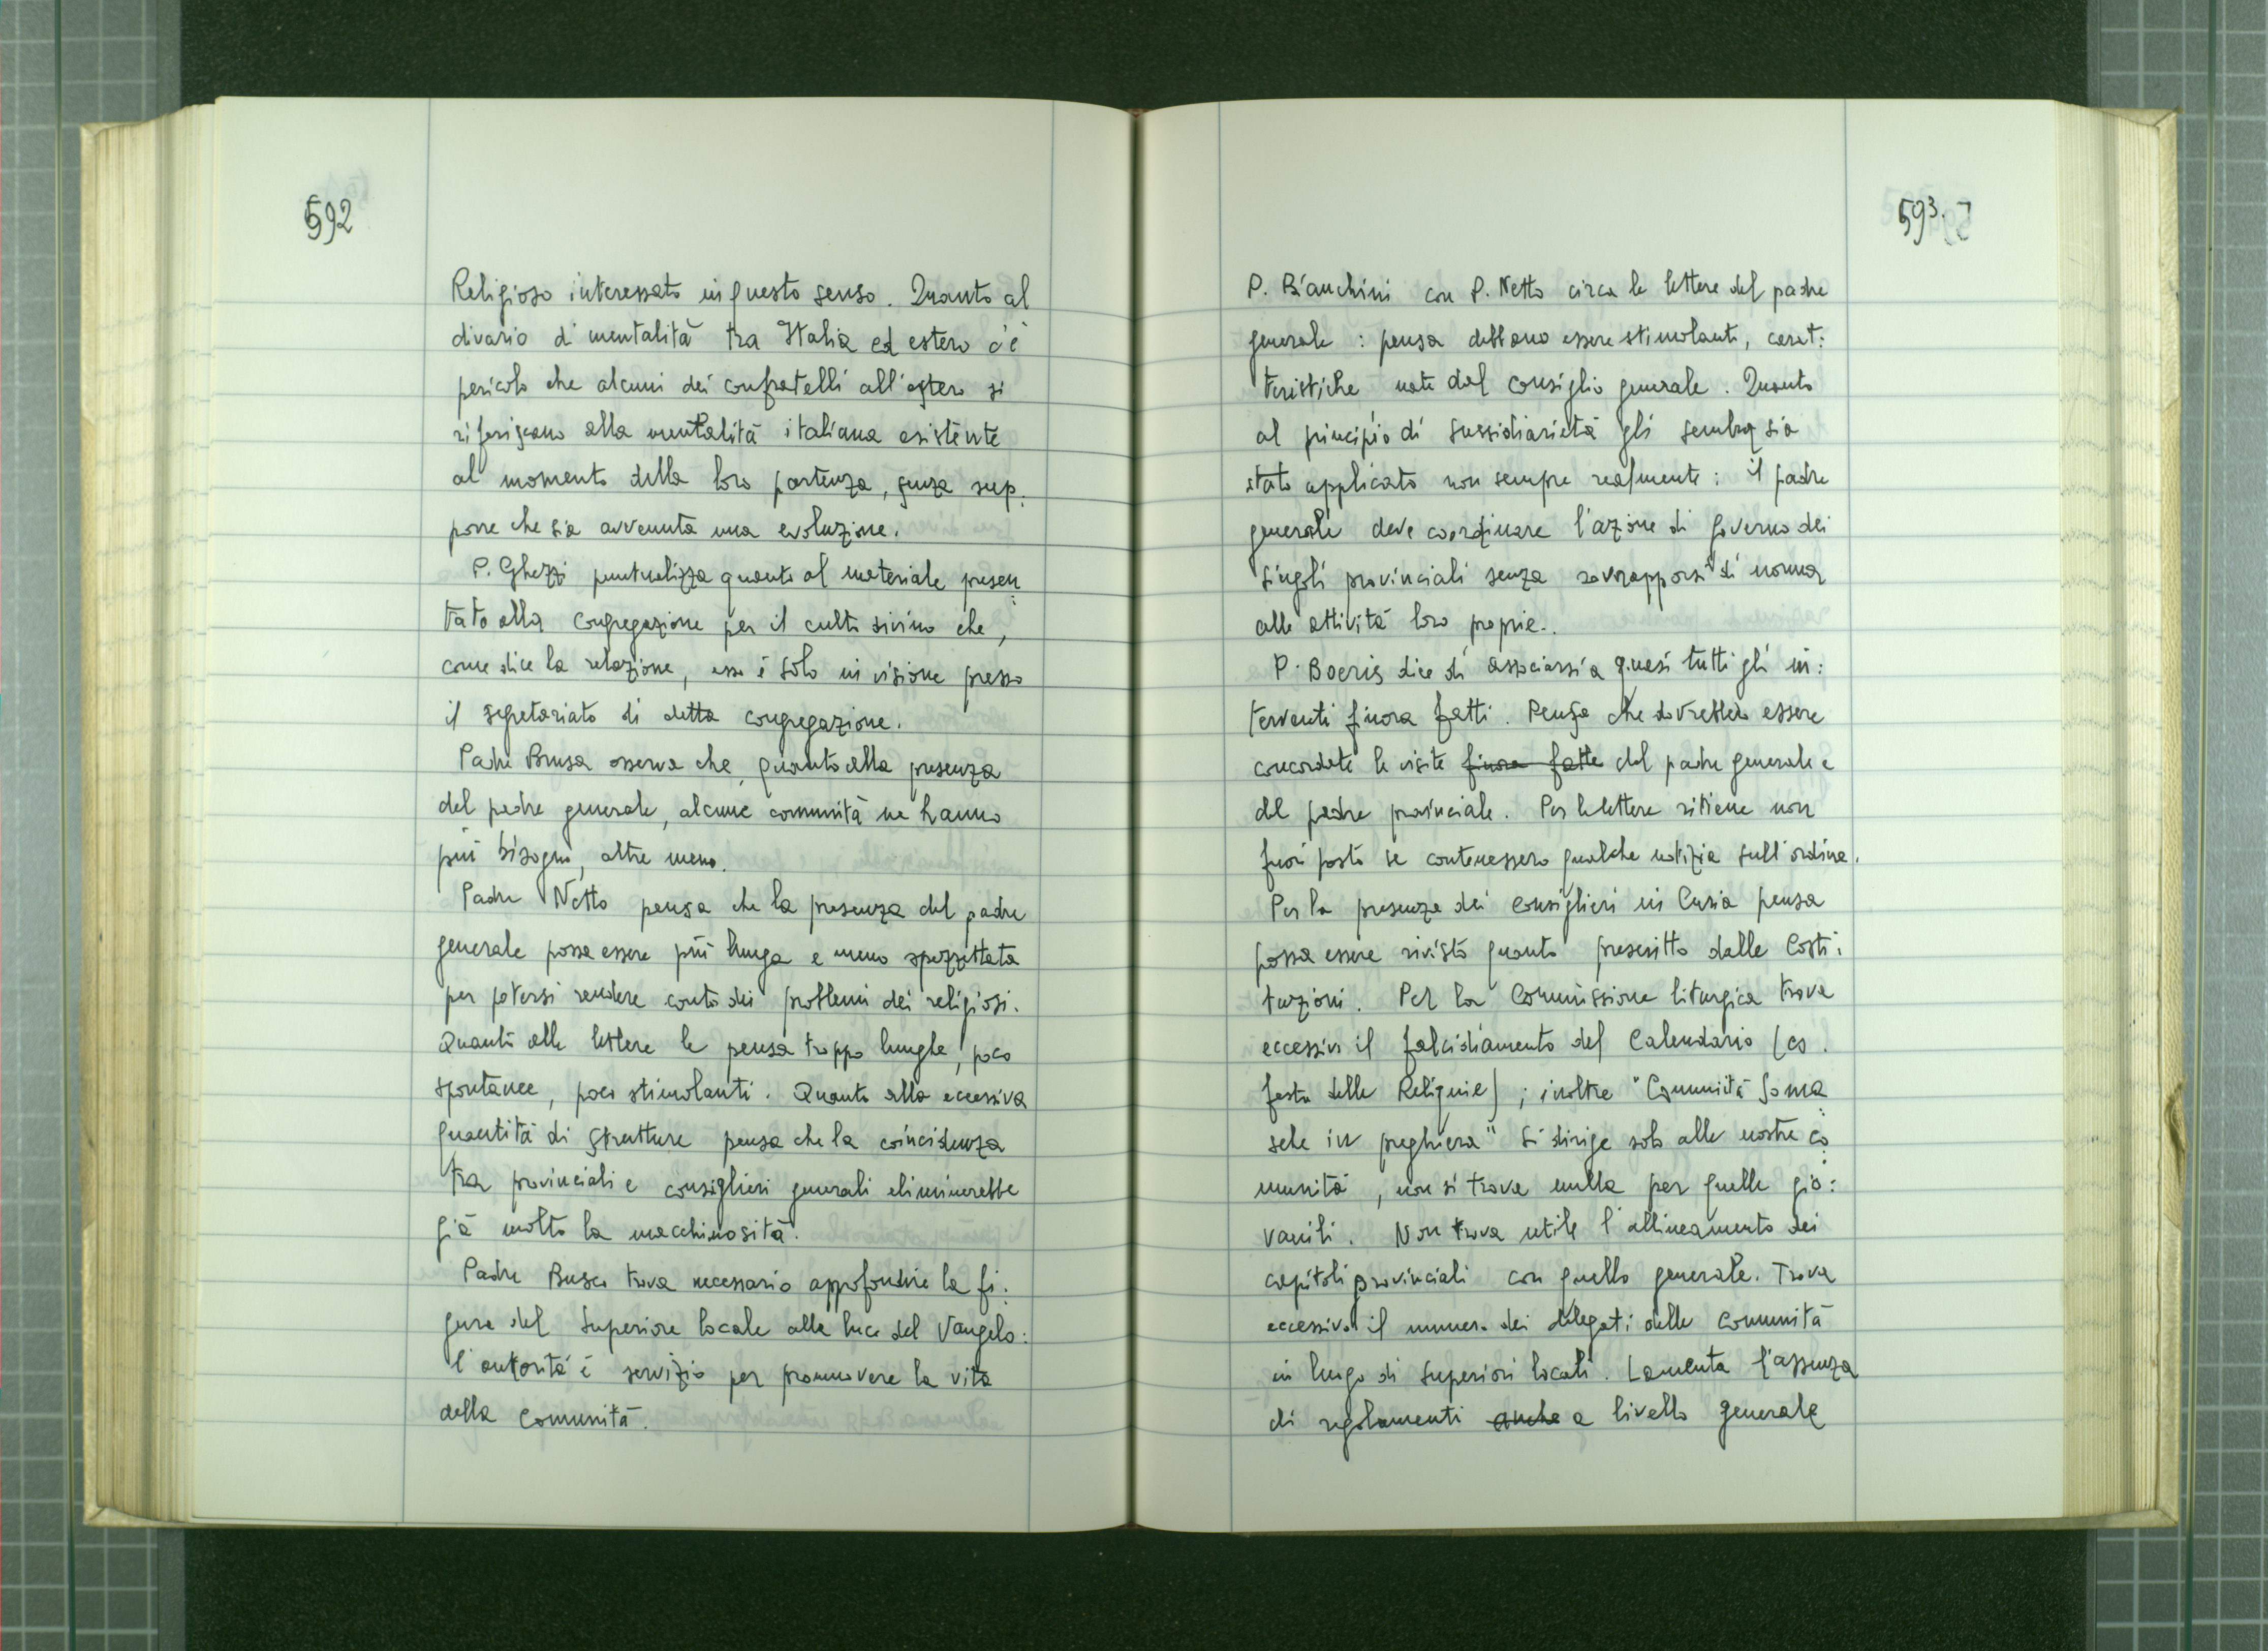 592
Religioso interessato in questo senso. Quanto al
divario di mentalità tra Italia ed estero c'è
pericolo che alcuni dei confratelli all'estero si
riferiscano alla mentalità italiana esistente
al momento della loro partenza, senza sup:
porre che sia avvenuta una evoluzione.
P. Ghezzi puntualizza quanto al materiale presen:
tato alla Congregazione per il culto divino che,
come dice la relazione, esso è solo in visione presso
il segretariato di detta congregazione.
Padre Brusa osserva che, quanto alla presenza
del padre generale, alcune comunità ne hanno
più bisogno, altre meno.
Padre Netto pensa che la presenza del padre
generale possa essere più lunga e meno spezzettata
per potersi rendere conto dei problemi dei religiosi.
Quanto alle lettere le pensa troppo lunghe, poco
spontanee, poco stimolanti. Quanto alla eccessiva
quantità di strutture pensa che la coincidenza
tra provinciali e consiglieri generali eliminerebbe
già molto la macchinosità.
Padre Busco trova necessario approfondire la fi:
gura del Superiore locale alla luce del Vangelo:
l'autorità è servizio per promuovere la vita
della Comunità.
593.
P. Bianchini con P. Netto circa le lettere del padre
generale: pensa debbano essere stimolanti, carat:
teristiche nate dal consiglio generale. Quanto
al principio di sussidiarietà gli sembra sia
stato applicato non sempre realmente: il padre
generale deve coordinare l'azione di governo dei
singoli provinciali senza sovrapporsi di norma
alle attività loro proprie.
P. Boeris dice di associarsi a quasi tutti gli in:
terventi finora fatti. Pensa che dovrebbero essere
concordate le visite finora fatte del padre generale e
del padre provinciale. Per le lettere ritiene non
fuori posto se contenessero qualche notizia sull'ordine.
Per la presenza dei Consiglieri in Curia pensa
possa essere rivisto quanto prescritto dalle Costi:
tuzioni. Per la Commissione liturgica trova
eccessivo il falcidiamento del Calendario (es.
festa delle Reliquie); inoltre "Comunità Soma:
sche in preghiera" si dirige solo alle nostre co:
munità, non si trova nulla per quelle gio:
vanili. Non trova utile l'allineamento dei
capitoli provinciali con quello generale. Trova
eccessivo il numero dei delegati delle Comunità
in luogo di Superiori locali. Lamenta l'assenza
di regolamenti anche a livello generale